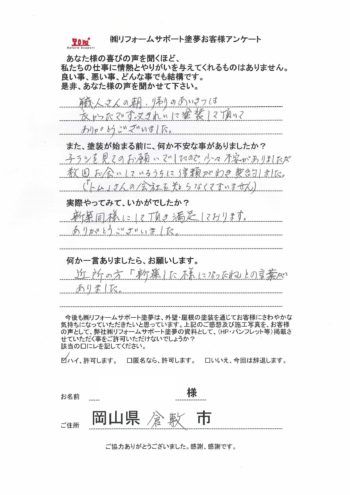 ㈱リフォームサポート塗夢お客様アンケート
あなた様の喜びの声を聞くほど、
私たちの仕事に情熱とやりがいを与えてくれるものはありません。
良い事、悪い事、どんな事でも結構です。
是非、あなた様の声を聞かせて下さい。
職人さんの朝、帰りのあいさつは
良かったです。きれいに塗装して頂いて
ありがとうございました。
また、塗装が始まる前に、何か不安な事がありましたか？
チラシを見てのお願いでしたので少々不安がありましたが
数回お会いしているうちに信頼がわき契約しました。
(「トム」さんの会社を知らなくてすいません)
実際やってみて、いかがでしたか？
新築同様にして頂き満足しております。
ありがとうございました。
何か一言ありましたら、お願いします。
近所の方「新築した様になったね」との言葉が
ありました。
今後も㈱リフォームサポート塗夢は、外壁・屋根の塗装を通じてお客様にさわやかな
気持ちになっていただきたいと思っています。上記のご感想及び施工写真を、お客様
の声として、弊社㈱リフォームサポート塗夢の資料として、(HP・パンフレット等)掲載さ
せていただく事をご許可いただけないでしょうか？
該当の口にレを記してください。
☑ハイ、許可します。 □匿名なら、許可します。 □いいえ、今回は辞退します。
お名前 様
ご住所 岡山県 倉敷 市
ご協力ありがとうございました。感謝、感謝です。